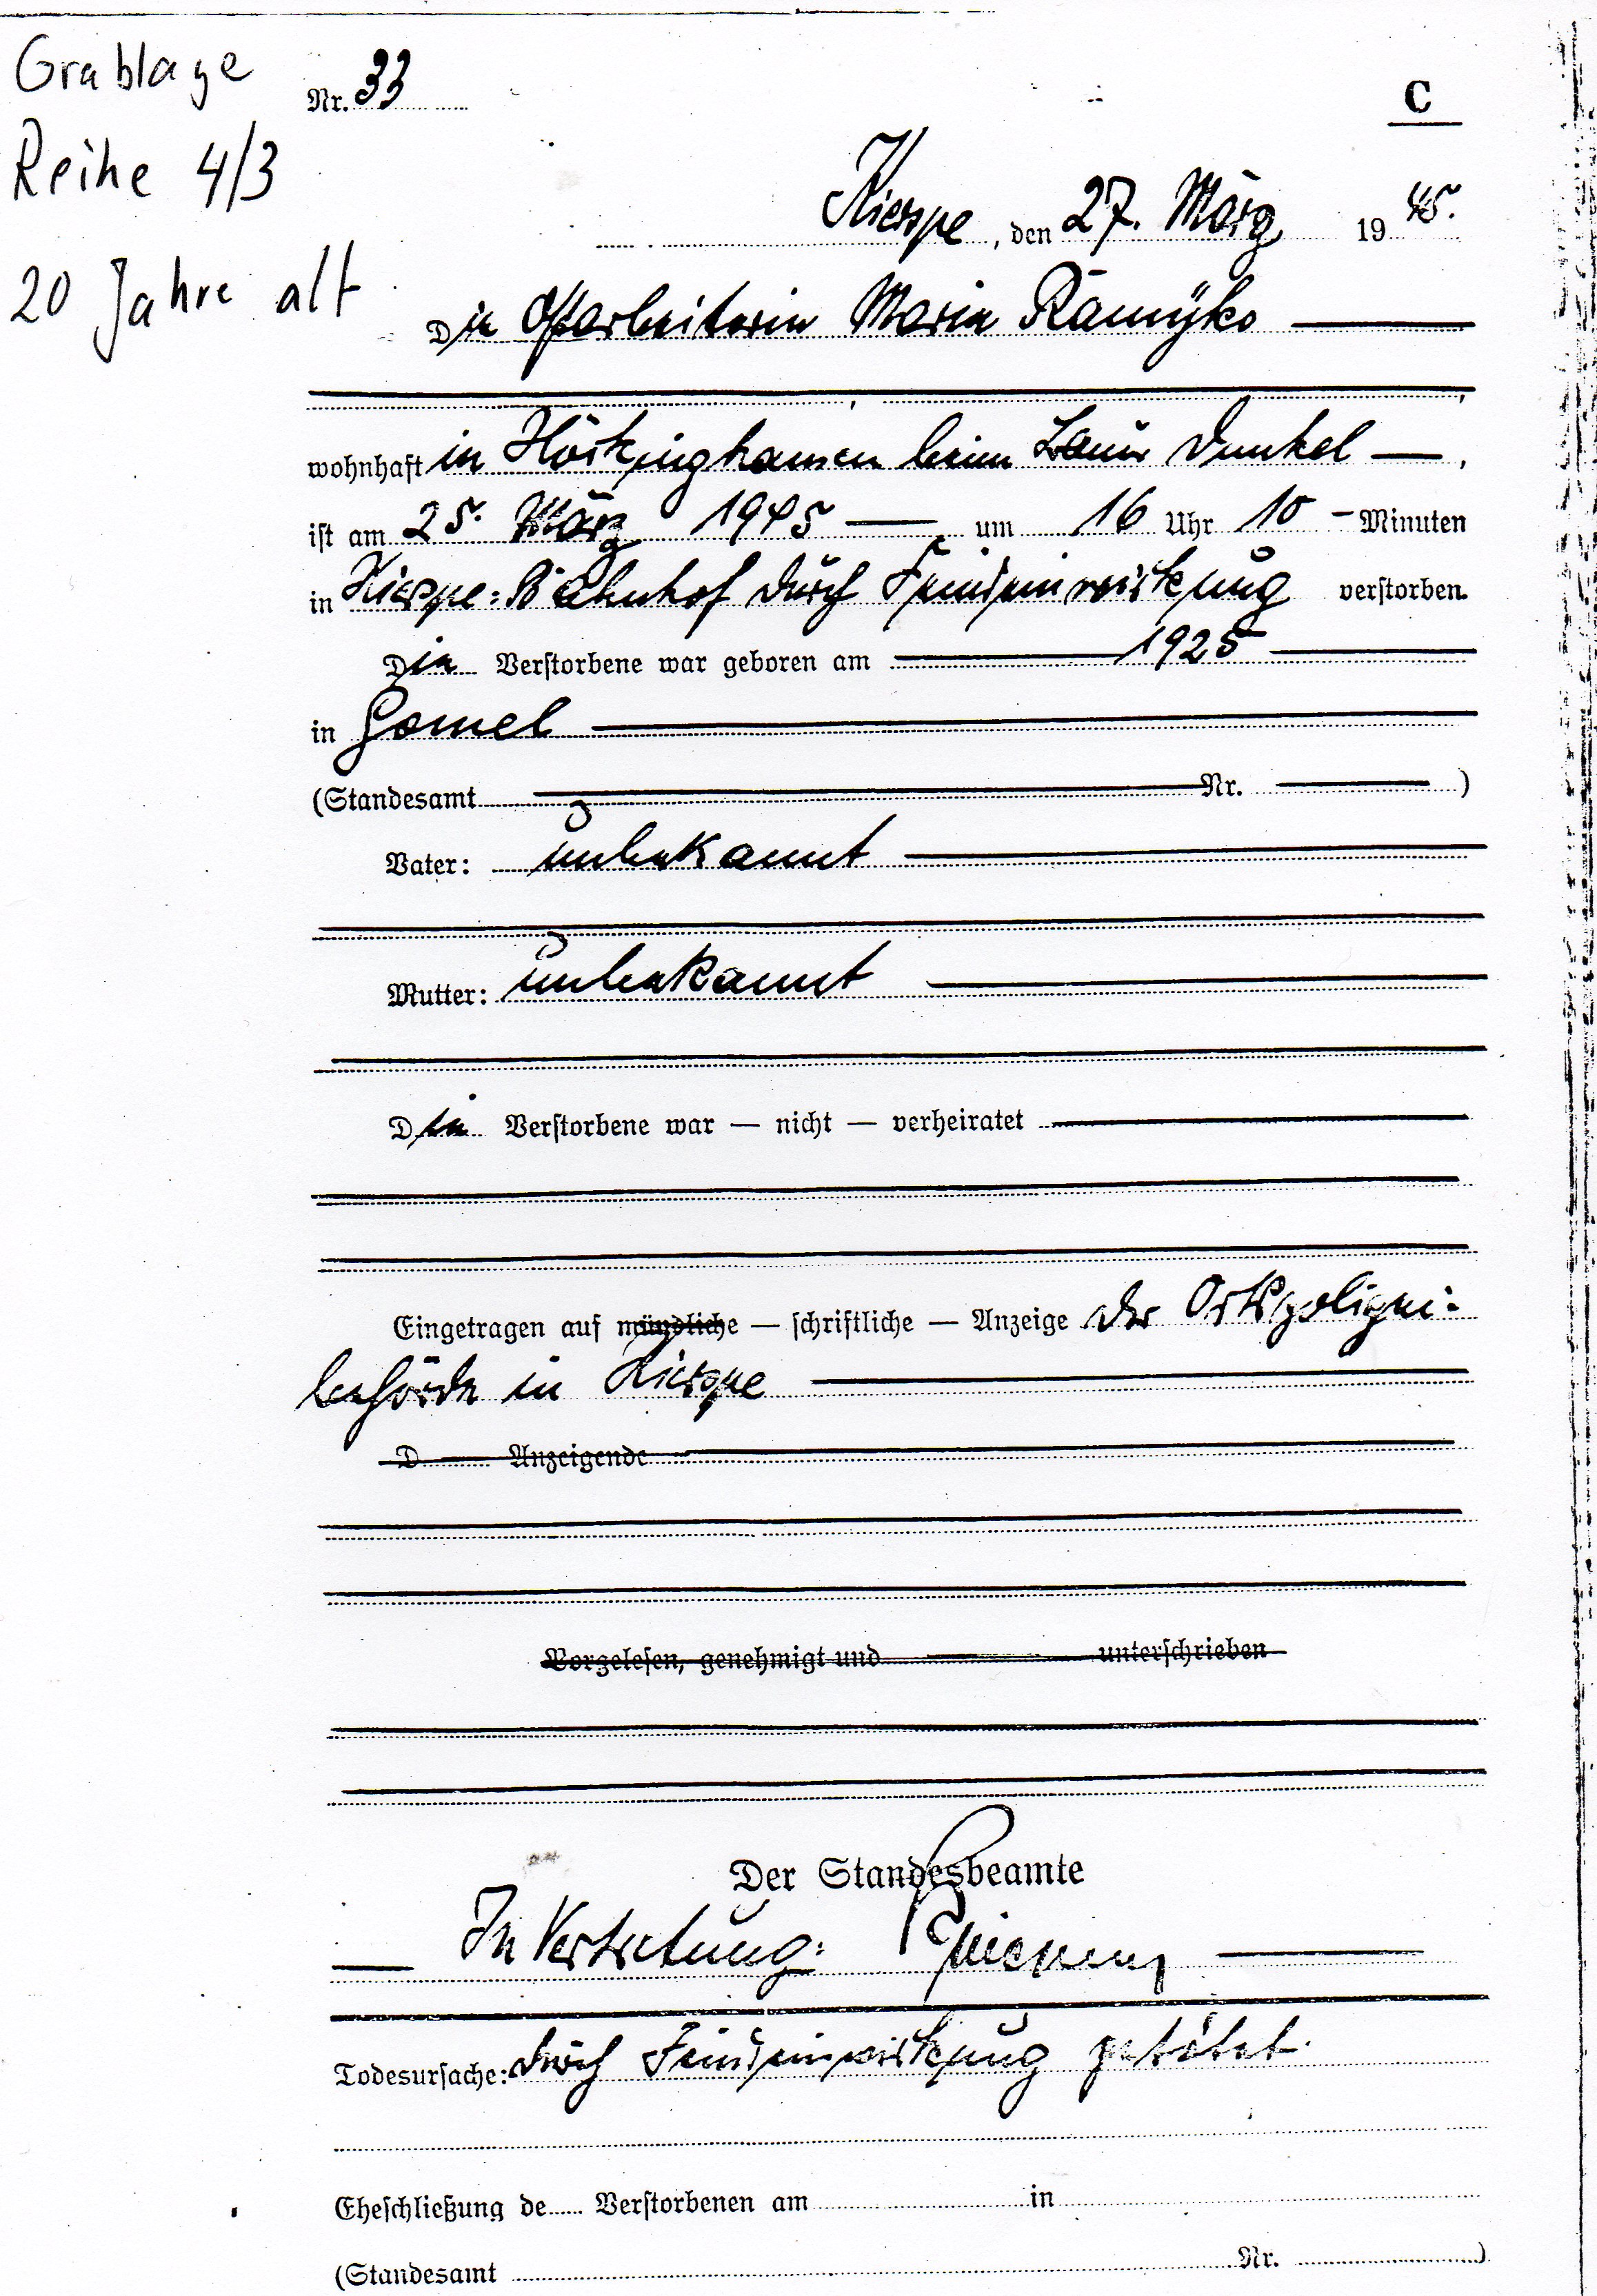 Grablage
Reihe 4/3
20 Jahre alt
Nr. 33
C
Kierspe, den 27. März 1945.
Die Ostarbeiterin Maria
wohnhaft in beim Dunkel —,
ist am 25. März 1945 — um 16 Uhr 10 - Minuten
in Kierspe-Bahnhof durch Feindeinwirkung verstorben.
Die Verstorbene war geboren am — 1925 —
in Gomel —
(Standesamt — Nr. — )
Vater: unbekannt —
Mutter: unbekannt —
Die Verstorbene war — nicht — verheiratet —
Eingetragen auf mündliche — schriftliche — Anzeige der Ortspolizei-
behörde in Kierspe —
D Anzeigende
Vorgelesen, genehmigt und unterschrieben
Der Standesbeamte
In Vertretung:
Todesursache: durch Feindeinwirkung getötet.
Eheschließung de Verstorbenen am in
(Standesamt Nr. )